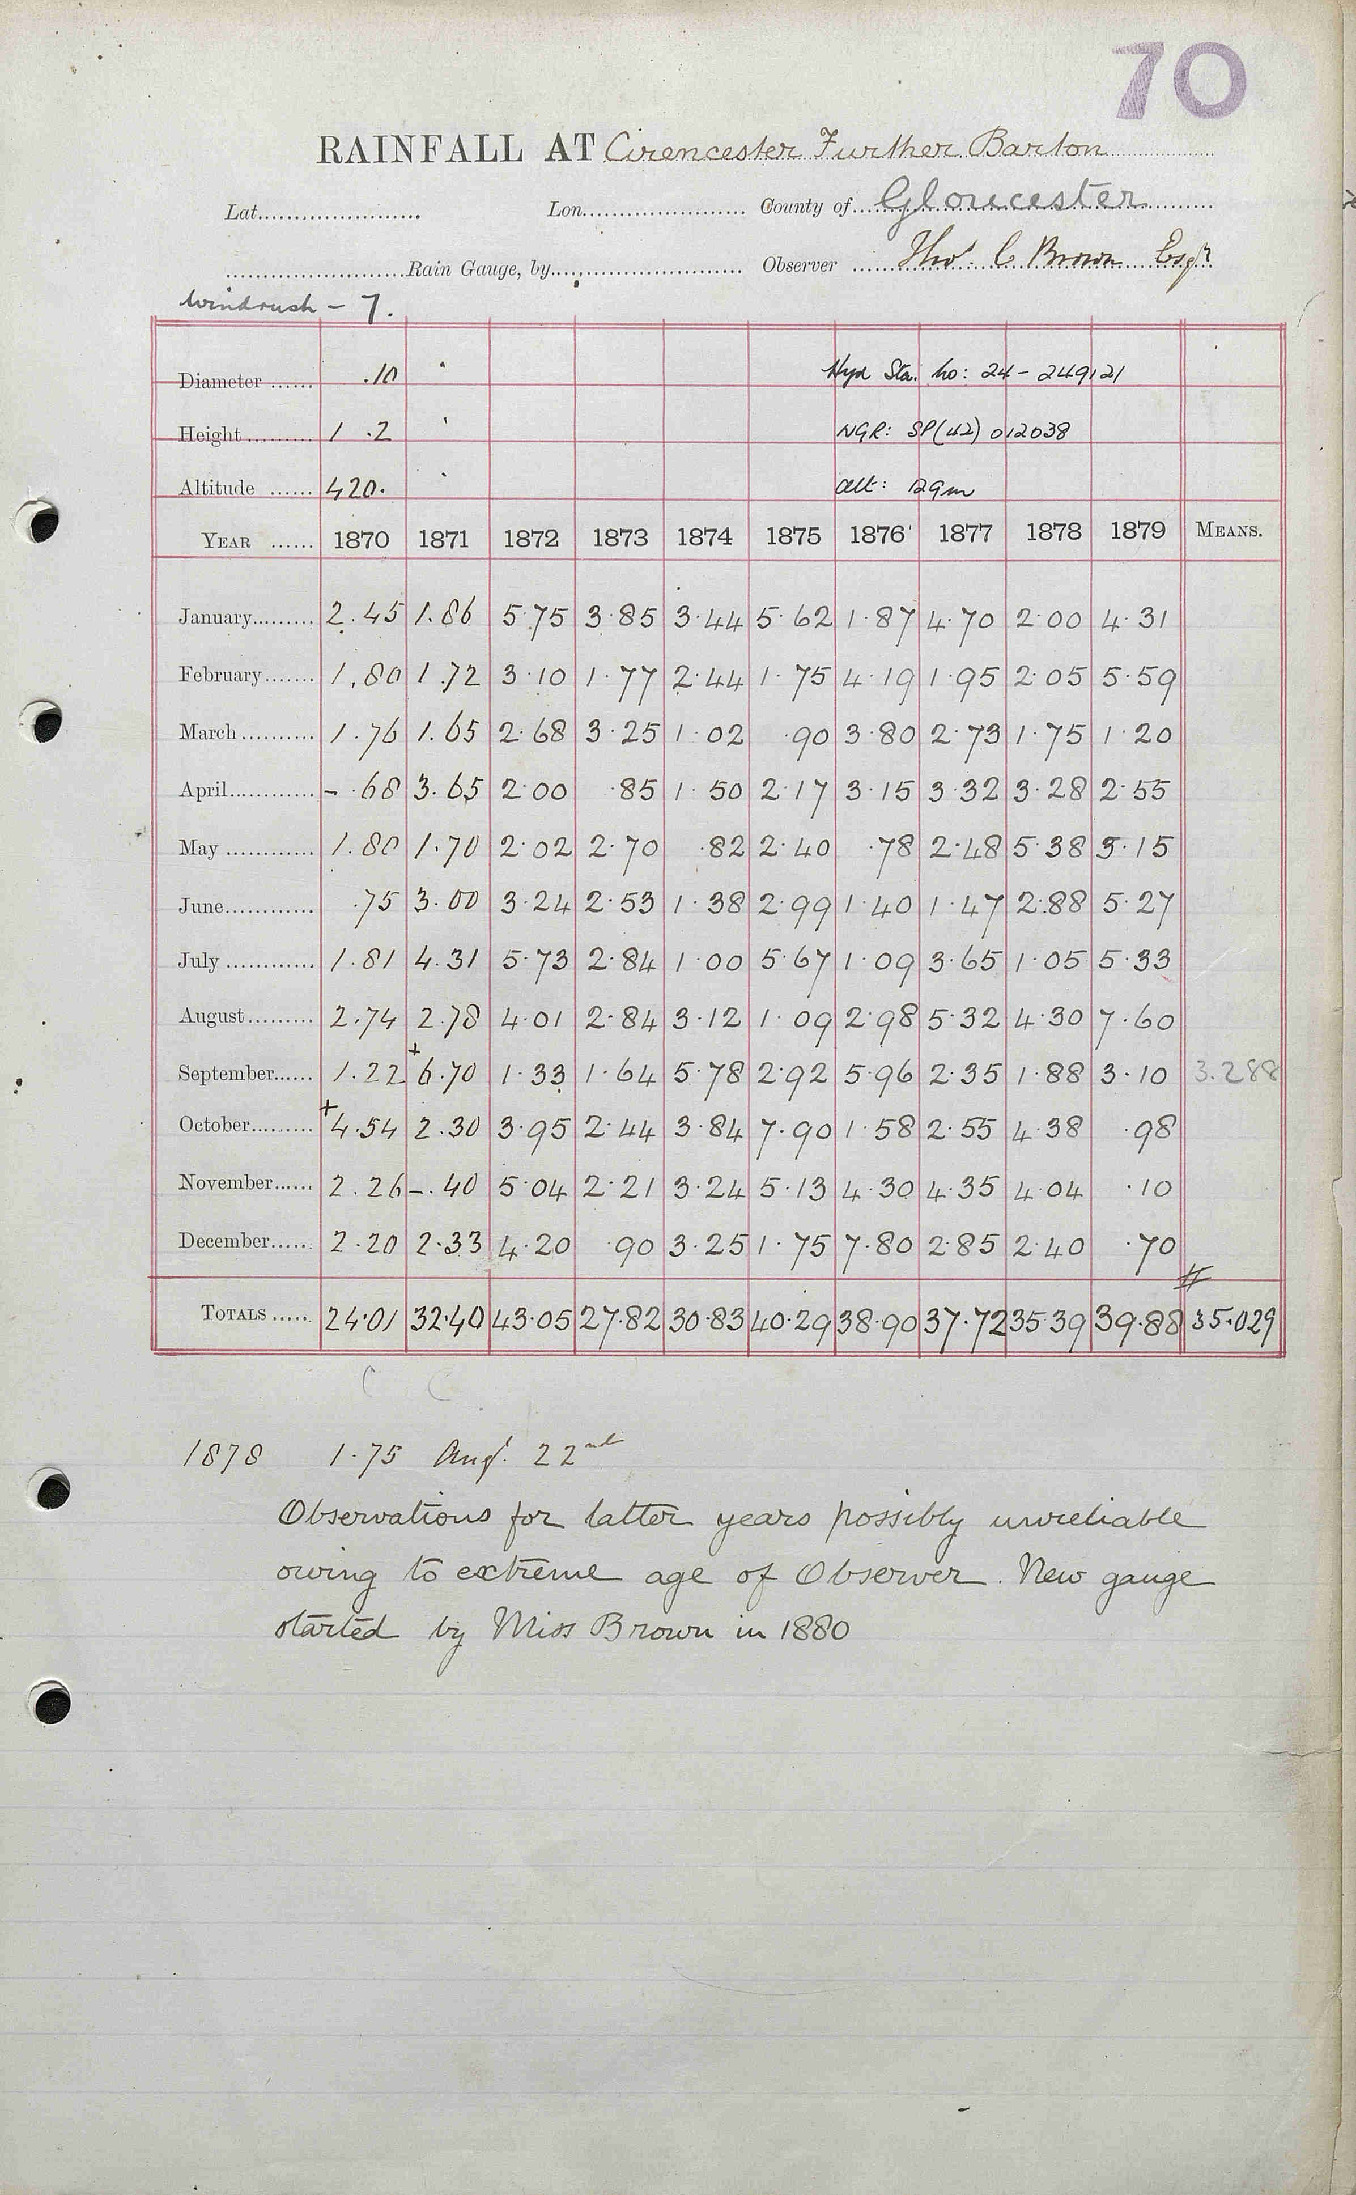 70
RAINFALL AT Cirencester Further Barton
Lat. Lon. County of Gloucester
Rain Gauge, by Observer Thos. C Brown Esqr
Windrush - 7.
Diameter .10 Hyd Sta. No: 24 - 249121
Height 1 .2 NGR: SP(42) 012038
Altitude 420. alt: 129m
YEAR 1870 1871 1872 1873 1874 1875 1876 1877 1878 1879 MEANS.
January 2.45 1.86 5.75 3.85 3.44 5.62 1.87 4.70 2.00 4.31
February 1.80 1.72 3.10 1.77 2.44 1.75 4.19 1.95 2.05 5.59
March 1.76 1.65 2.68 3.25 1.02 .90 3.80 2.73 1.75 1.20
April - .68 3.65 2.00 .85 1.50 2.17 3.15 3.32 3.28 2.55
May 1.80 1.70 2.02 2.70 .82 2.40 .78 2.48 5.38 3.15
June .75 3.00 3.24 2.53 1.38 2.99 1.40 1.47 2.88 5.27
July 1.81 4.31 5.73 2.84 1.00 5.67 1.09 3.65 1.05 5.33
August 2.74 2.78 4.01 2.84 3.12 1.09 2.98 5.32 4.30 7.60
September 1.22 +6.70 1.33 1.64 5.78 2.92 5.96 2.35 1.88 3.10 3.288
October +4.54 2.30 3.95 2.44 3.84 7.90 1.58 2.55 4.38 .98
November 2.26 -.40 5.04 2.21 3.24 5.13 4.30 4.35 4.04 .10
December 2.20 2.33 4.20 .90 3.25 1.75 7.80 2.85 2.40 .70
TOTALS 24.01 32.40 43.05 27.82 30.83 40.29 38.90 37.72 35.39 39.88 # 35.029
C C
1878 1.75 Aug. 22nd
Observations for latter years possibly unreliable
owing to extreme age of Observer. New gauge
started by Miss Brown in 1880